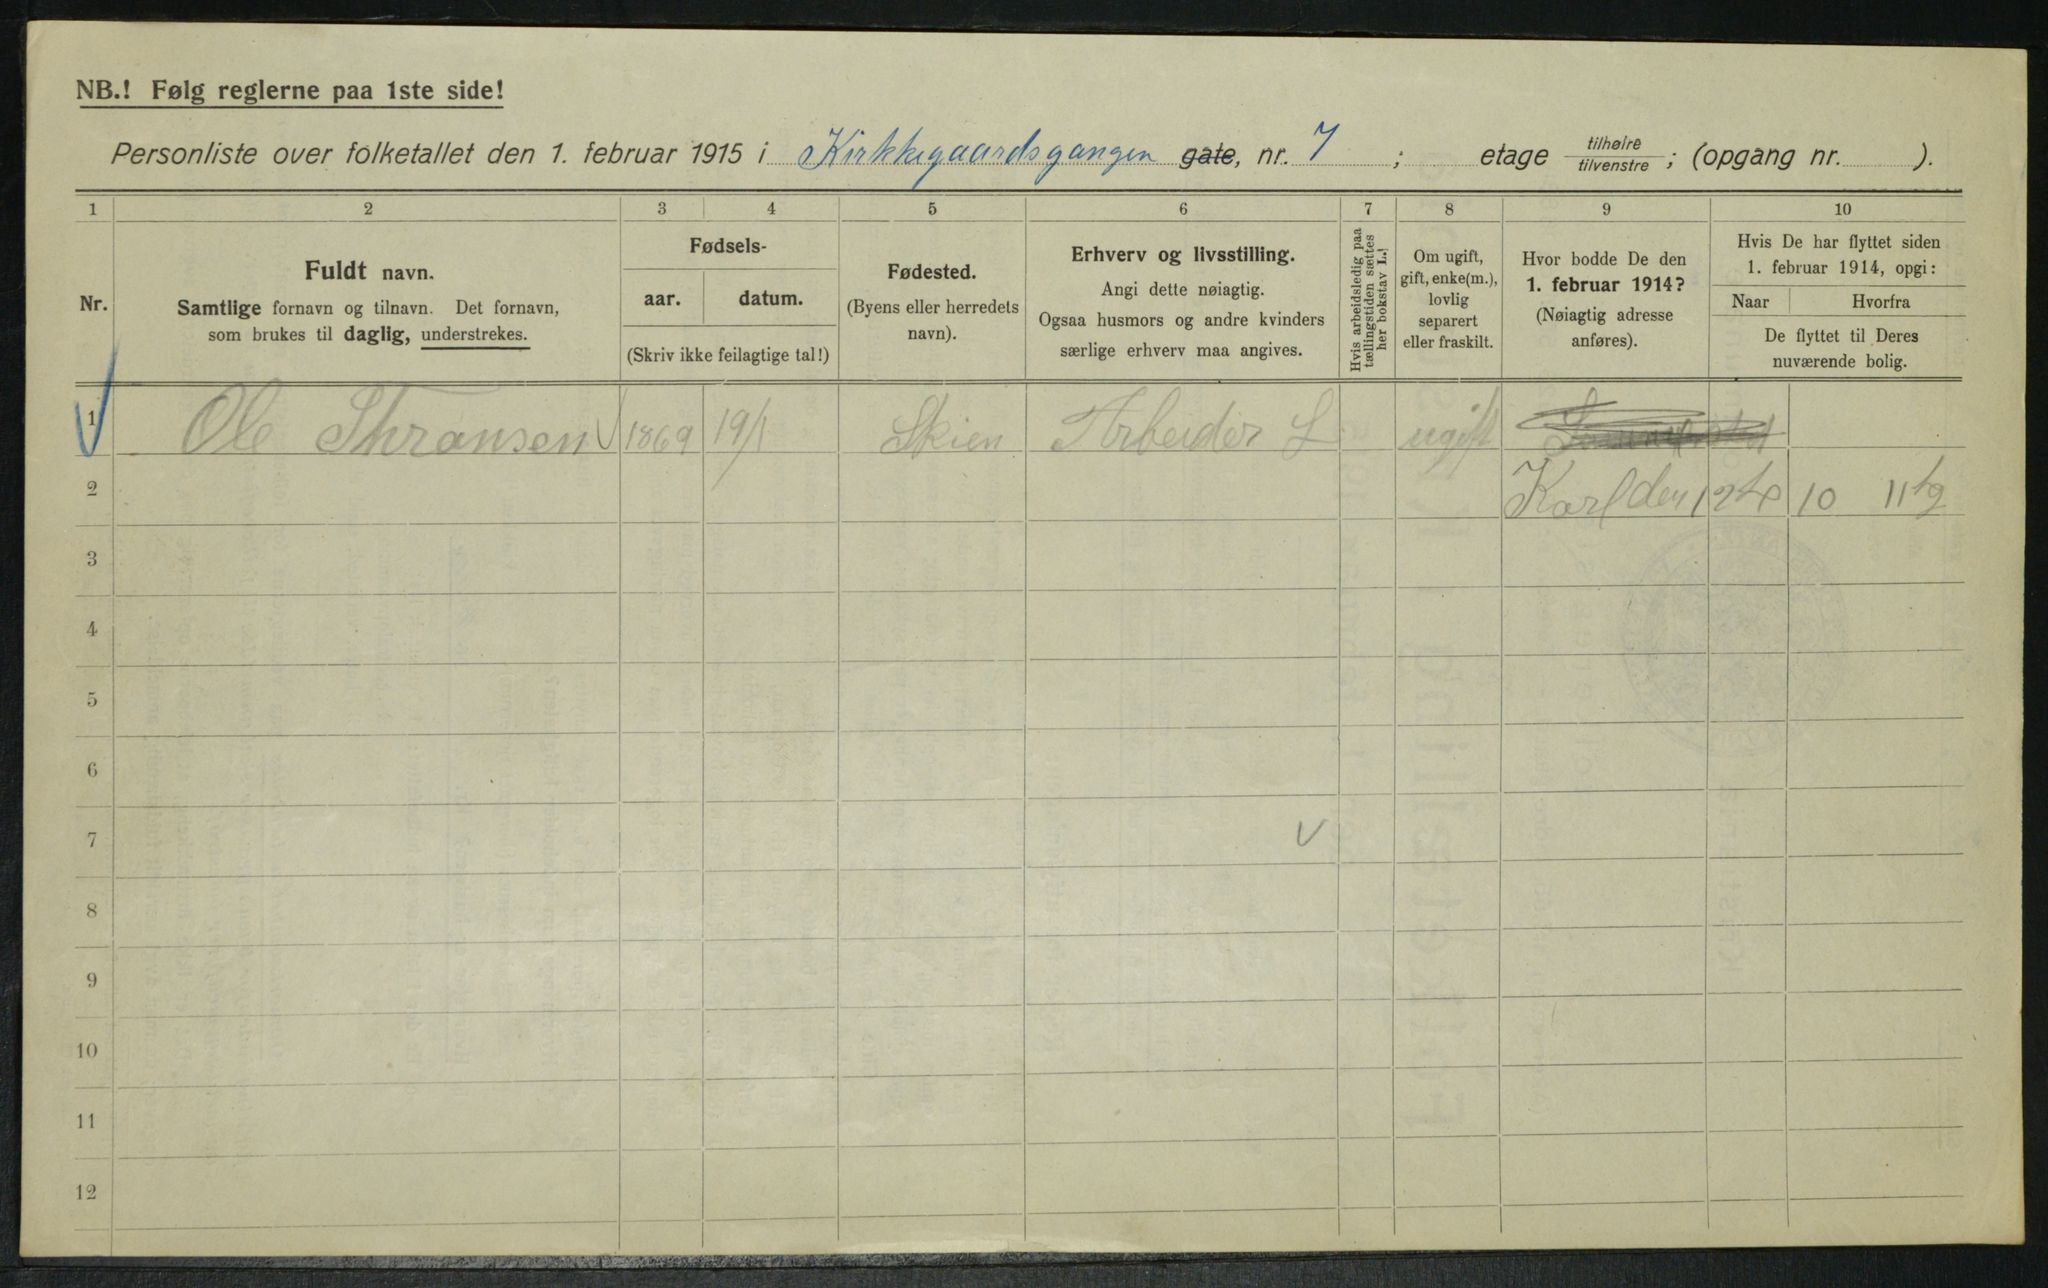 NB.! Følg reglerne paa 1ste side!
Personliste over folketallet den 1. februar 1915 i Kirkkegaardsgangen gate, nr. 7; etage tilhøire tilvenstre; (opgang nr. ).
1 2 3 4 5 6 7 8 9 10
Nr.
Fuldt navn.
Samtlige fornavn og tilnavn. Det fornavn,
som brukes til daglig, understrekes.
Fødsels-
aar. datum.
(Skriv ikke feilagtige tal!)
Fødested.
(Byens eller herredets
navn).
Erhverv og livsstilling.
Angi dette nøiagtig.
Ogsaa husmors og andre kvinders
særlige erhverv maa angives.
Hvis arbeidsledig paa
tællingstiden sættes
her bokstav L.!
Om ugift,
gift, enke(m.),
lovlig
separert
eller fraskilt.
Hvor bodde De den
1. februar 1914?
(Nøiagtig adresse
anføres).
Hvis De har flyttet siden
1. februar 1914, opgi:
Naar Hvorfra
De flyttet til Deres
nuværende bolig.
1 Ole Thransen 1869 19/1 Skien Arbeider L ugift
2 Karl den 12te 10
3
4
5
6
7
8
9
10
11
12